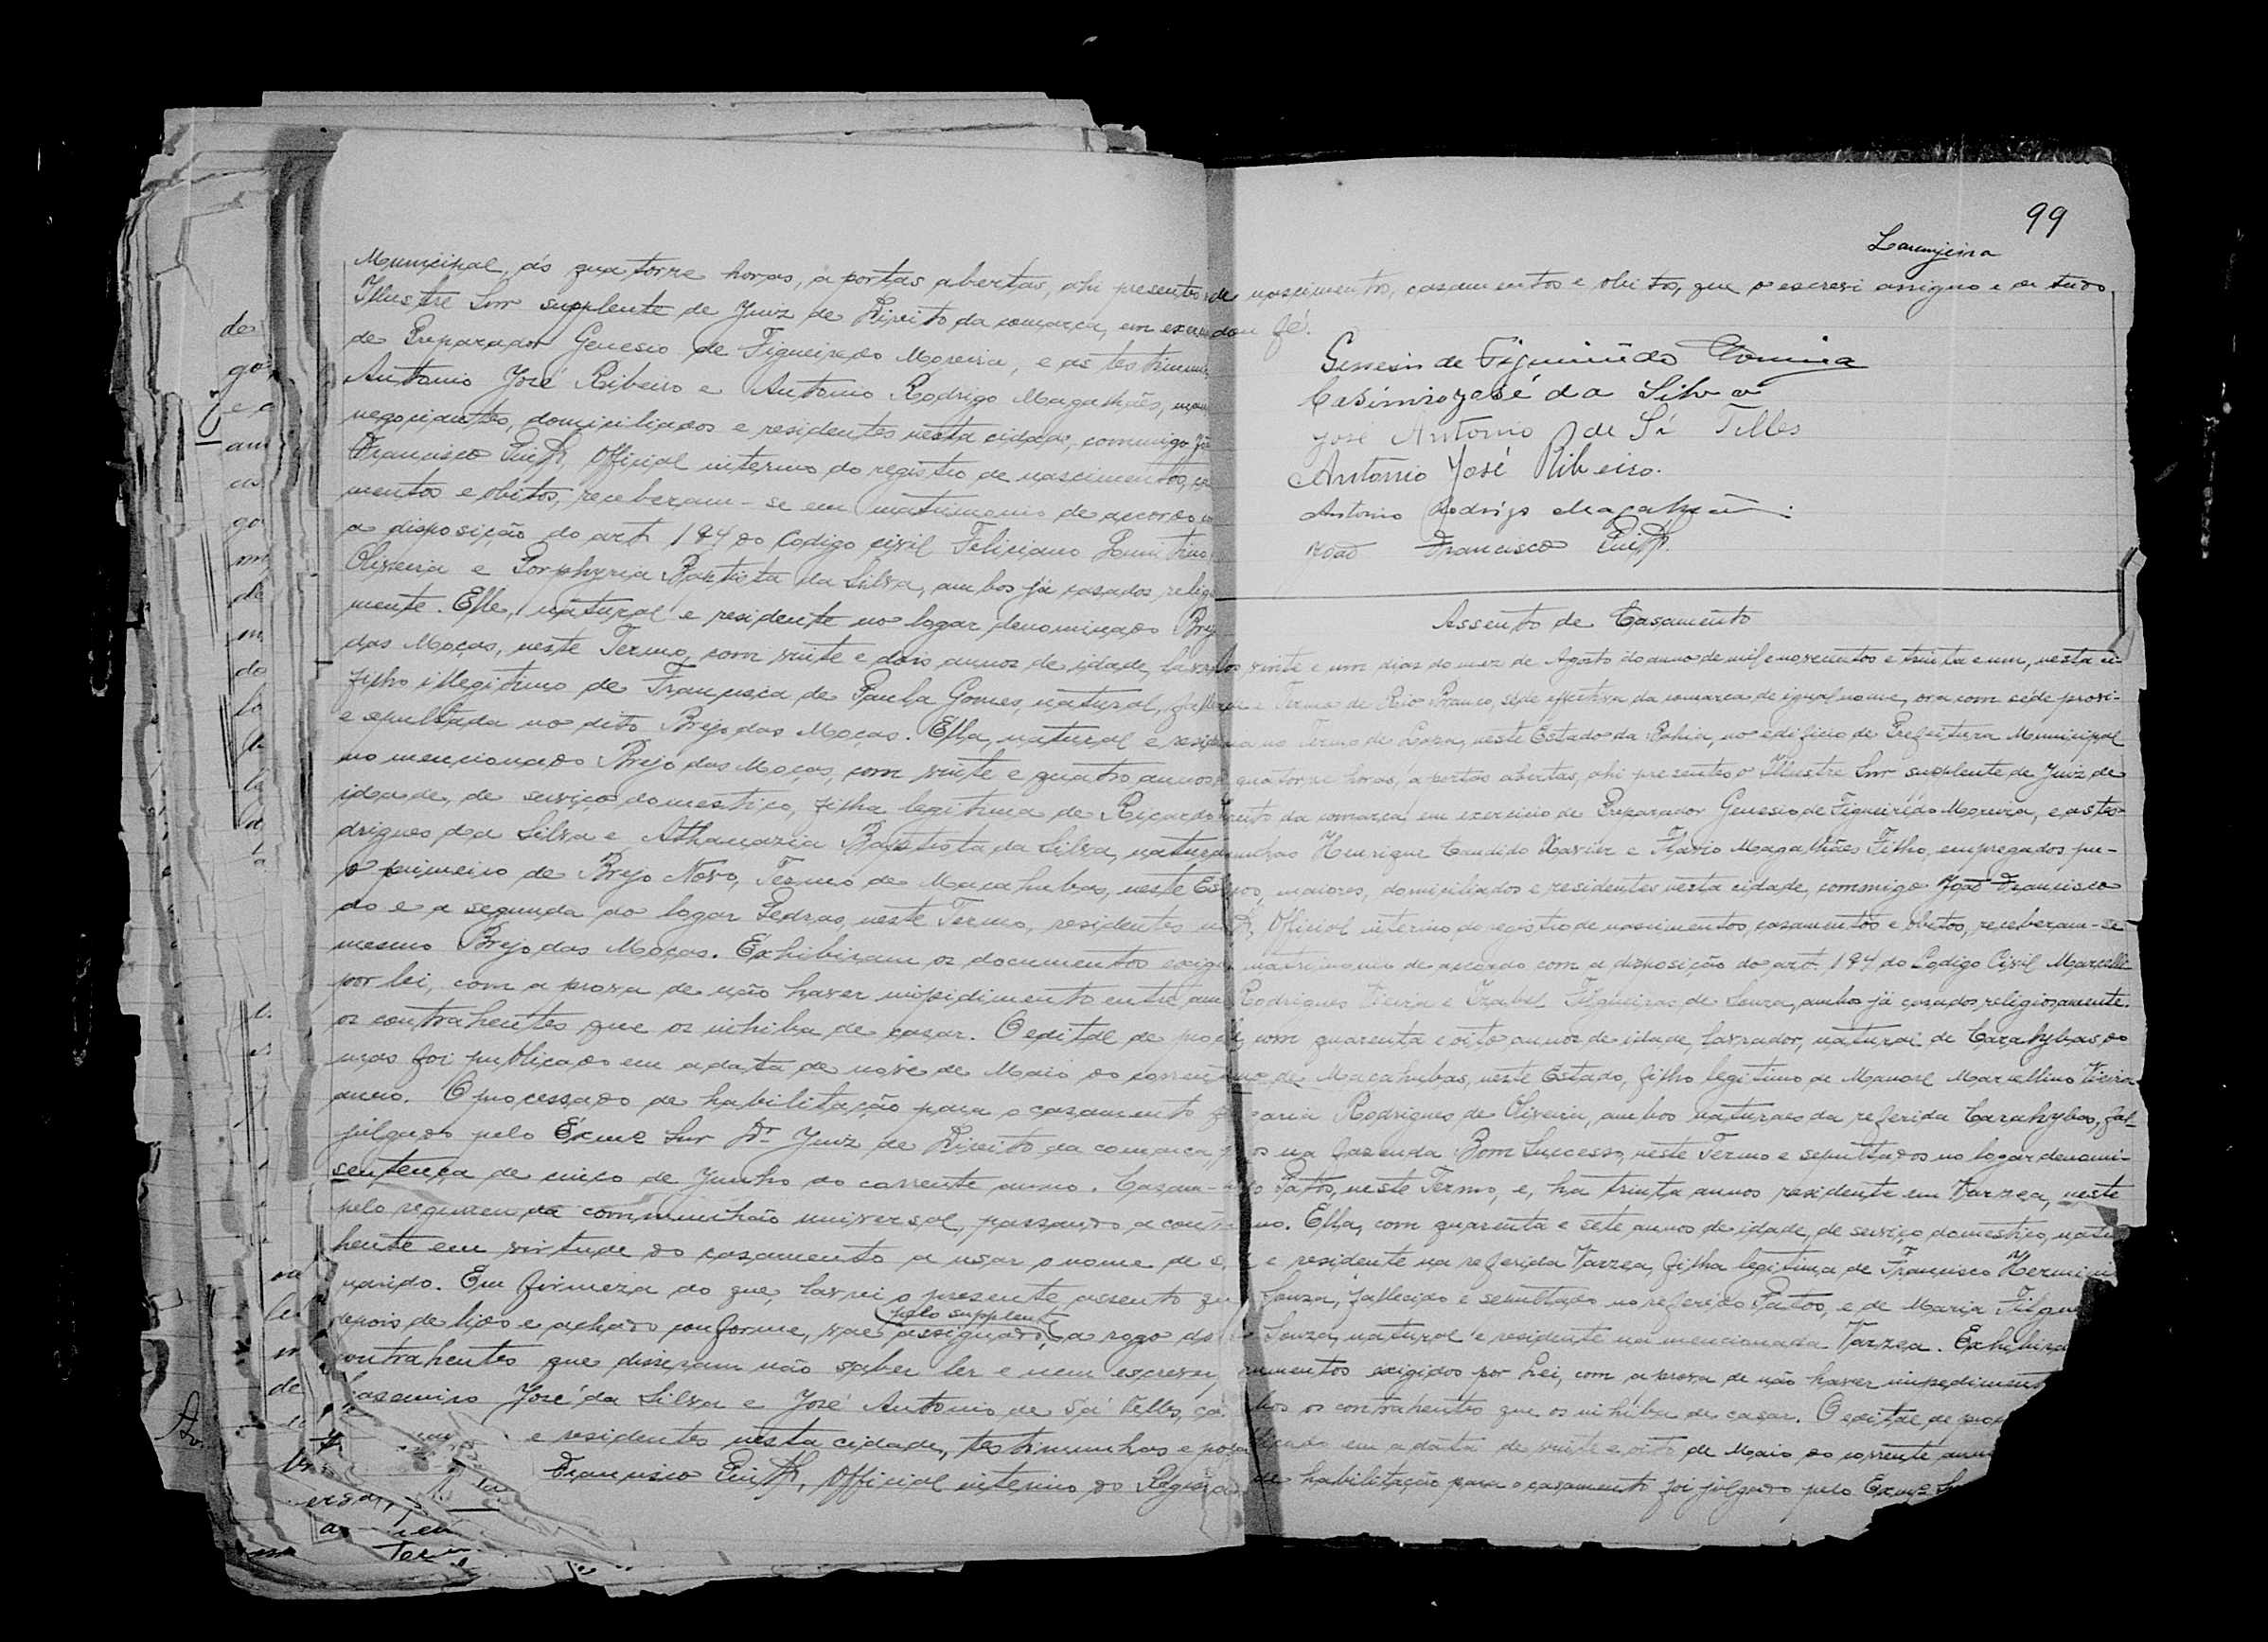 Municipal, ás quatorze horas, a portas abertas, ahi presentes
Illustre Snr supplente de Juiz de Direito da comarca, em exer
de Preparador Genesio de Figueirêdo Moreira, e as testimun
Antonio José Ribeiro e Antonio Rodrigo Magalhães,
negociantes, domiciliados e residentes nesta cidade, commigo
Francisco Official interino do registro de nascimentos,
mentos e obitos, receberam-se em matrimonio de accordo
a disposição do art. 194 do Codigo Civil Feliciano
Oliveira e Porphyria Baptista da Silva, ambos já casados relig
mente. Elle, natural e residente no logar denominado Brej
das Moças, neste Termo, com vinte e dois annos de idade, lavra
filho illegitimo de Francisca de Paula Gomes, natural, falle
e sepultada no dito Brejo das Moças. Ella, natural e resid
no mencionado Brejo das Moças, com vinte e quatro annos
idade, de serviço domestico, filha legitima de Ricardo
drigues da Silva e Athanazia Baptista da Silva, natura
o primeiro de Brejo Novo, Termo de Macahubas, neste Es
do e a segunda do logar Pedras, neste Termo, residentes n
mesmo Brejo das Moças. Exhibiram os documentos exigi
por lei, com a prova de não haver impidimento entre am
os contrahentes que os inhiba de casar. O edital de proc
mas foi publicado em a data de nove de Maio do corrent
anno. O processado de habilitação para o casamento f
julgado pelo Exmo Snr Dr Juiz de Direito da comarca, p
sentença de cinco de Junho do corrente anno. Casam-
pelo regimen da communhão universal, passando a cont
hente em virtude do casamento a usar o nome de s
marido. Em firmeza do que, lavrei o presente assento qu
pelo supplente
depois de lido e achado conforme, vae assignado, a rogo do
contrahentes que disseram não saber ler e nem escrever,
Casemiro José da Silva e José Antonio de Sá Telles,
e residentes nesta cidade, testimunhas e
Francisco Official interino do Regis
99
Laranjeira
de nascimentos, casamentos e obitos, que o escrevi assigno e de tudo
dou fé.
Genesio de Figueirêdo Moreira
Casimiro José da Silva
José Antonio de Sá Telles
Antonio José Ribeiro.
Antonio Rodrigo Magalhães.
João Francisco
Assento de Casamento
vinte e um dias do mez de Agosto do anno de mil e novecentos e trinta e um, nesta ci-
e Termo de Rio Branco, séde effectiva da comarca de igual nome, ora com séde provi-
no Termo de Lapa, neste Estado da Bahia, no edificio de Prefeitura Municipal
quatorze horas, a portas abertas, ahi presentes o Illustre Snr supplente de Juiz de
da comarca em exercicio de Preparador Genesio de Figueirêdo Moreira, e as tes-
Henrique Candido Xavier e Flavio Magalhães Filho, empregados pu-
maiores, domiciliados e residentes nesta cidade, commigo João Francisco
Official interino do registro de nascimentos, casamentos e obitos, receberam-se
matrimonio de accordo com a disposição do art. 194 do Codigo Civil Marcelli
Rodrigues Vieira e Izabel Filgueiras de Souza, ambos já casados religiosamente.
com quarenta e oito annos de idade, lavrador, natural de Carahybas, do
de Macahubas, neste Estado, filho legitimo de Manoel Marcellino Vieira
aria Rodrigues de Oliveira, ambos naturaes da referida Carahybas, fal-
os na fazenda Bom Successo, neste Termo e sepultados no logar denomi-
Patos, neste Termo, e, ha trinta annos residente em Varzea, neste
Ella, com quarenta e sete annos de idade, de serviço domestico, natu
e residente na referida Varzea, filha legitima de Francisco Hermin
Souza, fallecido e sepultado no referido Patos, e de Maria Filgue
Souza, natural e residente na mencionada Varzea. Exhibira
cumentos exigidos por Lei, com a prova de não haver impediment
os contrahentes que os inhiba de casar. O edital de proc
em a data de vinte e oito de Maio do corrente ann
de habilitação para o casamento foi julgado pelo Exmo S